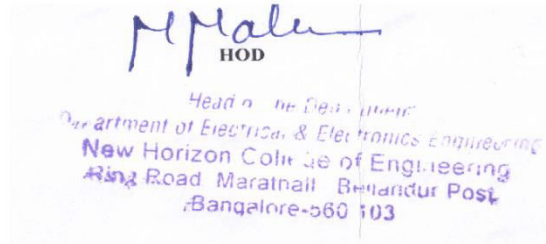 HOD
Head of the Department
Department of Electrical & Electronics Engineering
New Horizon College of Engineering
Ring Road Marathalli Bellandur Post
Bangalore-560 103